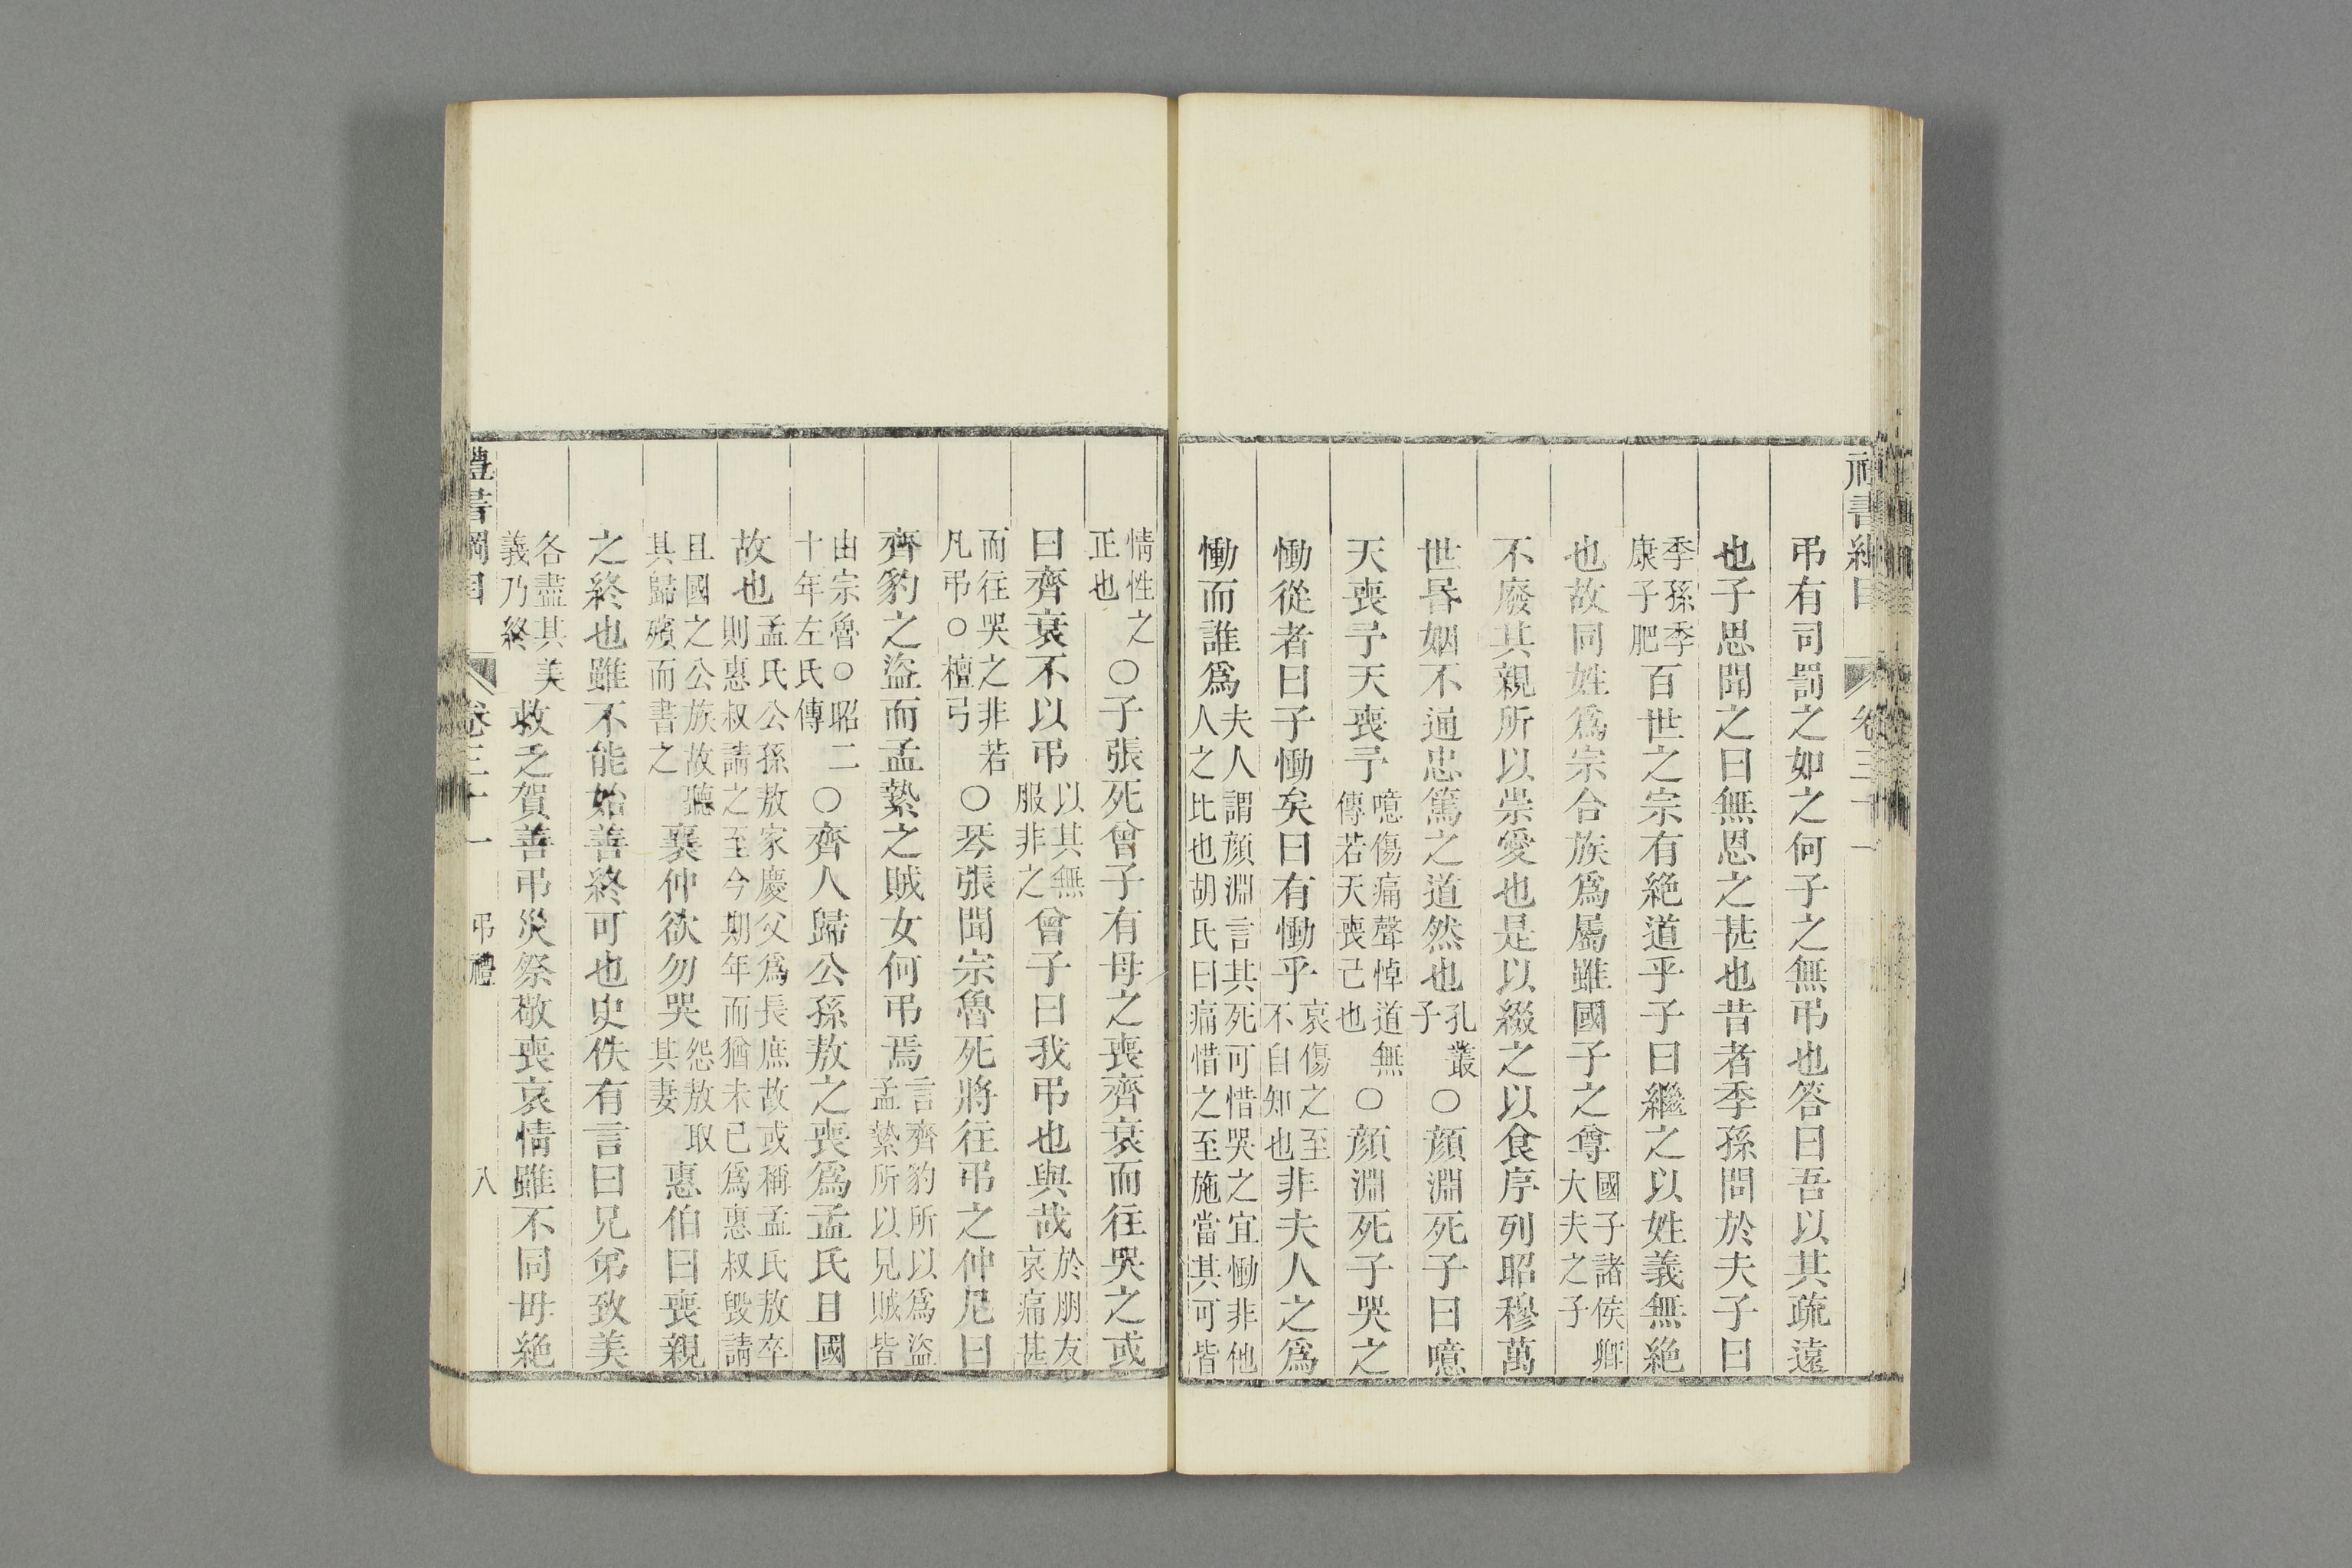 弔有司罰之如之何子之無弔也答曰吾以其疏遠
也子思聞之曰無恩之甚也昔者季孫問於夫子曰
季孫季康子肥百世之宗有絶道乎子曰繼之以姓義無絶
也故同姓爲宗合族爲屬雖國子之尊國子諸侯卿大夫之子
不廢其親所以崇愛也是以綴之以食序列昭穆萬
世昏姻不通忠篤之道然也孔叢子○顔淵死子曰噫
天喪予天喪予噫傷痛聲悼道無傳若天喪己也○顔淵死子哭之
慟從者曰子慟矣曰有慟乎哀傷之至不自知也非夫人之爲
慟而誰爲夫人謂顔淵言其死可惜哭之宜慟非他人之比也胡氏曰痛惜之至施當其可皆
情性之正也○子張死曾子有母之喪齊衰而往哭之或
曰齊衰不以弔以其無服非之曾子曰我弔也與哉於朋友哀痛甚
而往哭之非若凡弔○檀弓○琴張聞宗魯死將往弔之仲尼曰
齊豹之盜而孟縶之賊女何弔焉言齊豹所以爲盜孟縶所以見賊皆
由宗魯○昭二十年左氏傳○齊人歸公孫敖之喪爲孟氏且國
故也孟氏公孫敖家慶父爲長庶故或稱孟氏敖卒則惠叔請之至今期年而猶未已爲惠叔毀請
且國之公族故聽其歸殯而書之襄仲欲勿哭怨敖取其妻惠伯曰喪親
之終也雖不能始善終可也史佚有言曰兄弟致美
各盡其美義乃終救乏賀善弔災祭敬喪哀情雖不同毋絶
禮書綱目 卷三十一 弔禮 八